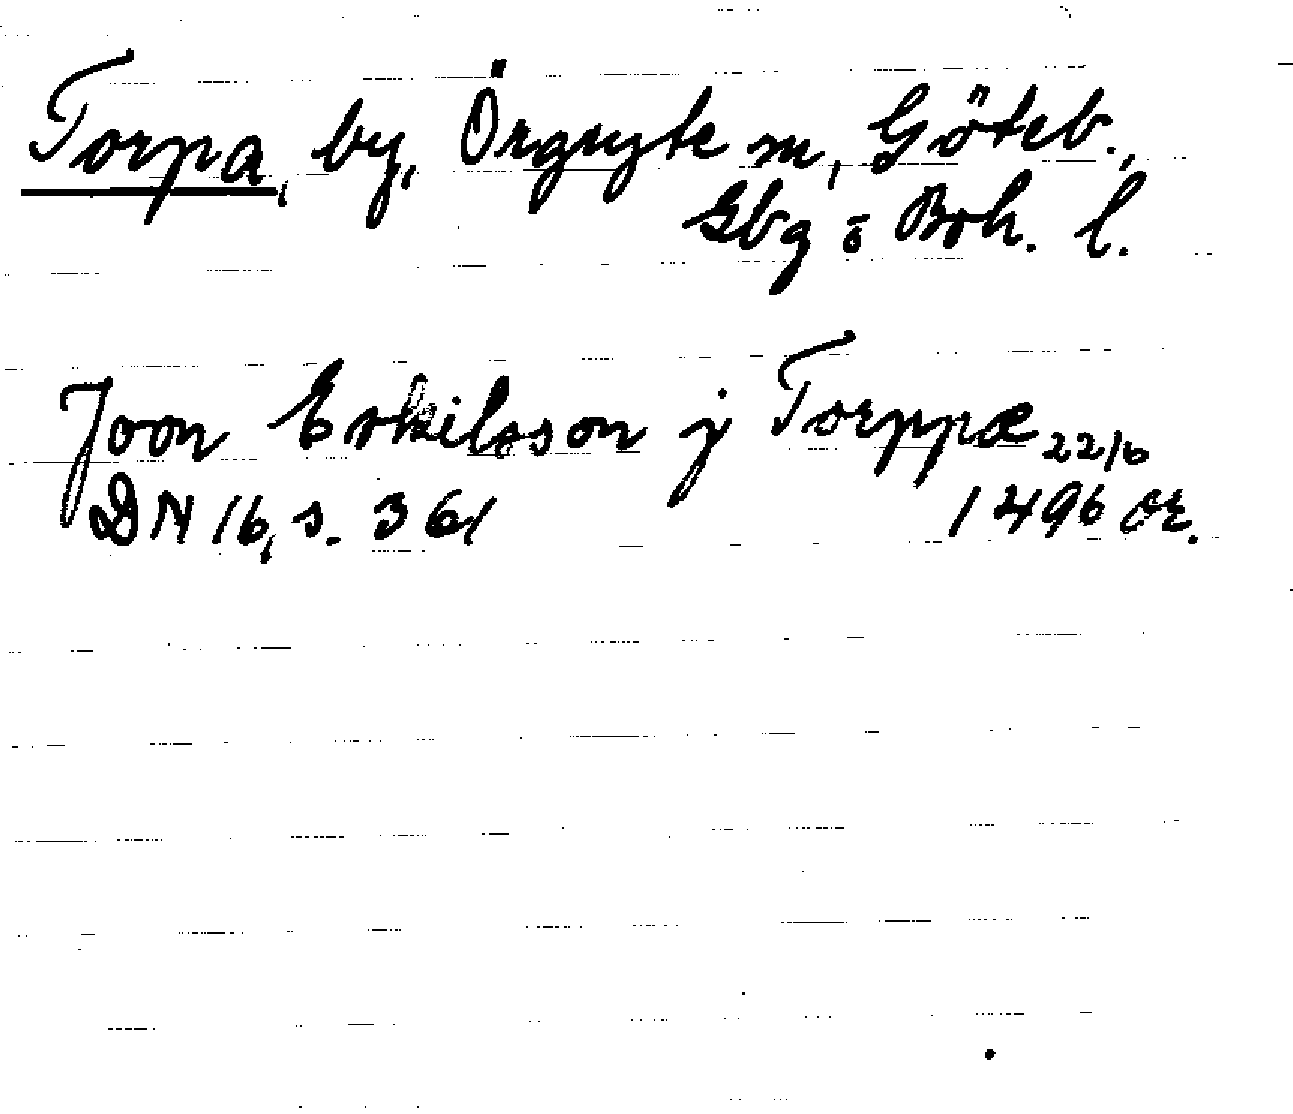 Torpa, by, Örgryte sn, Göteb.,
Gbg o Boh. l.
Joon Eskilsson j Torppæ 22/6
DN 16, s. 361 1496 or.